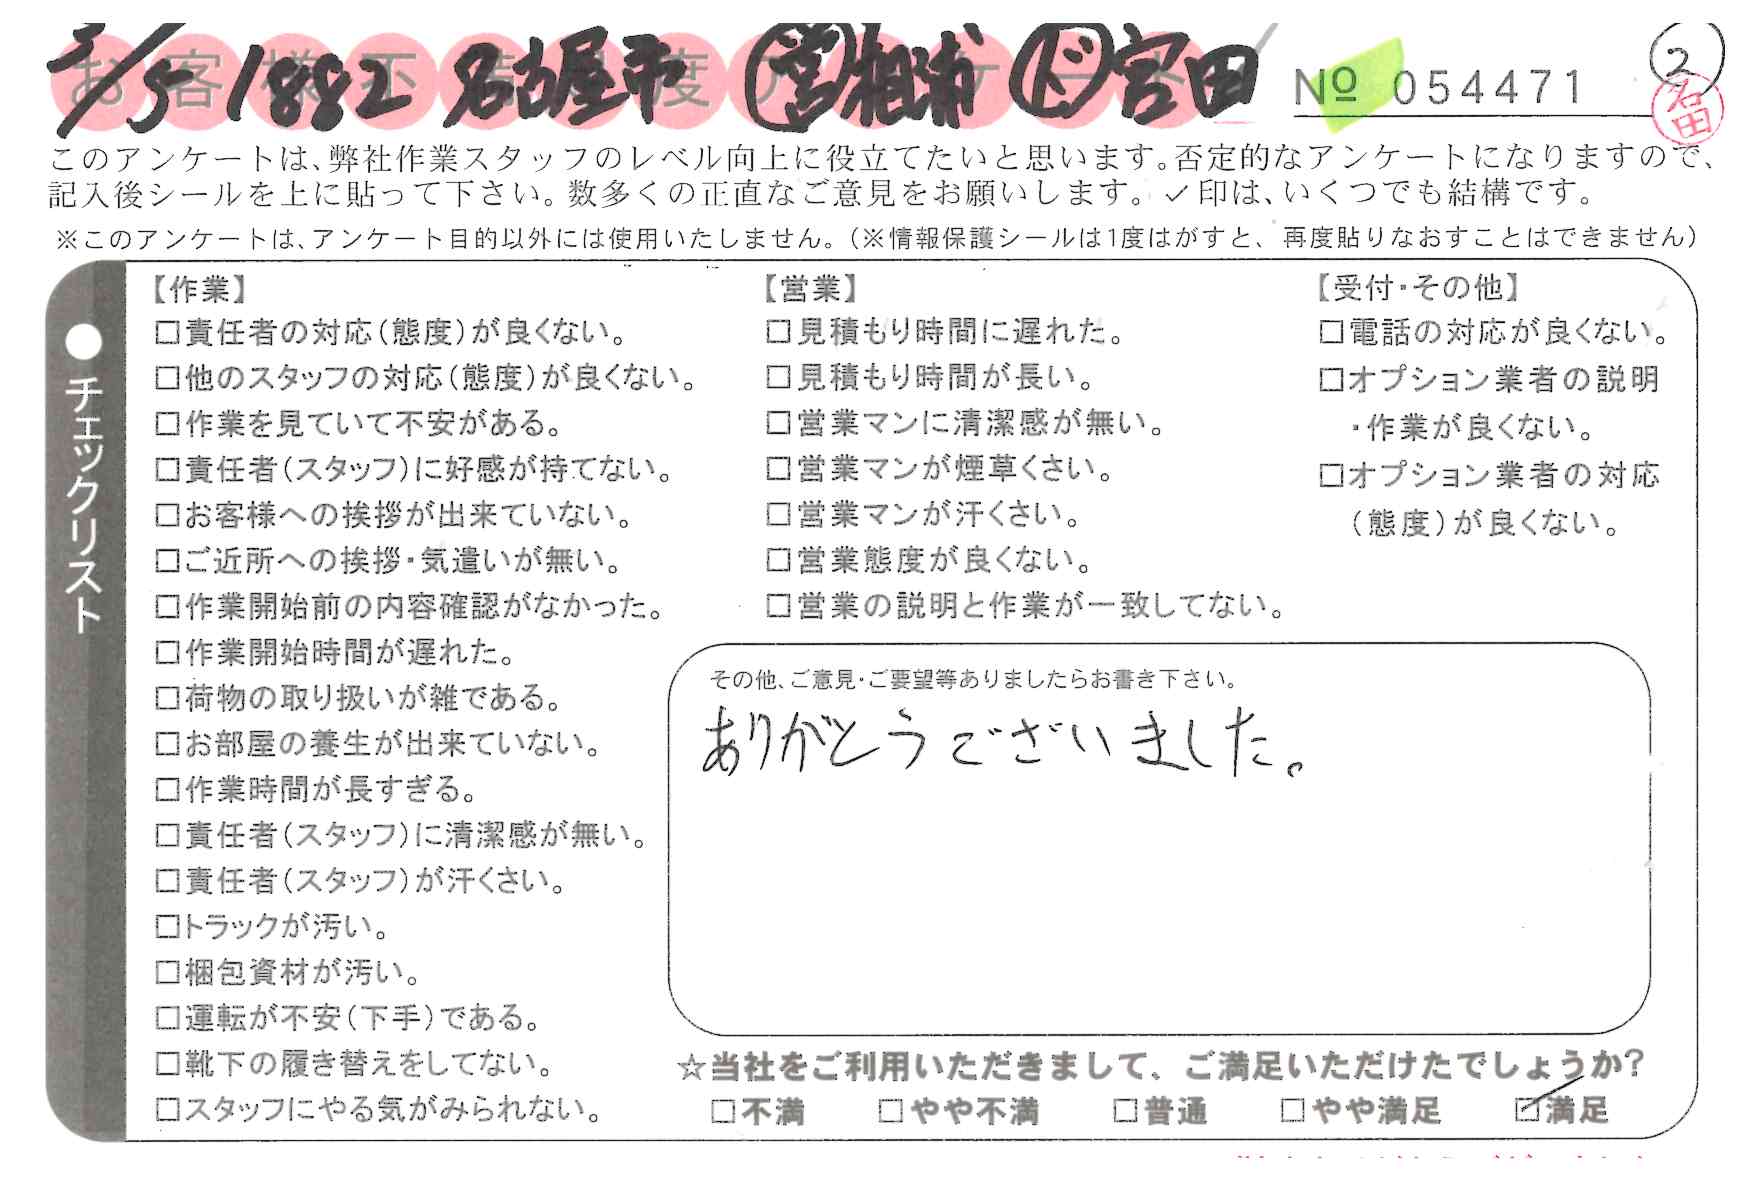 3/5 1882 名古屋市 営 相浦 ド 宮田 № 054471 2
名田
このアンケートは、弊社作業スタッフのレベル向上に役立てたいと思います。否定的なアンケートになりますので、
記入後シールを上に貼って下さい。数多くの正直なご意見をお願いします。✓印は、いくつでも結構です。
※このアンケートは、アンケート目的以外には使用いたしません。（※情報保護シールは1度はがすと、再度貼りなおすことはできません）
●チェックリスト
【作業】
□責任者の対応（態度）が良くない。
□他のスタッフの対応（態度）が良くない。
□作業を見ていて不安がある。
□責任者（スタッフ）に好感が持てない。
□お客様への挨拶が出来ていない。
□ご近所への挨拶・気遣いが無い。
□作業開始前の内容確認がなかった。
□作業開始時間が遅れた。
□荷物の取り扱いが雑である。
□お部屋の養生が出来ていない。
□作業時間が長すぎる。
□責任者（スタッフ）に清潔感が無い。
□責任者（スタッフ）が汗くさい。
□トラックが汚い。
□梱包資材が汚い。
□運転が不安（下手）である。
□靴下の履き替えをしてない。
□スタッフにやる気がみられない。
【営業】
□見積もり時間に遅れた。
□見積もり時間が長い。
□営業マンに清潔感が無い。
□営業マンが煙草くさい。
□営業マンが汗くさい。
□営業態度が良くない。
□営業の説明と作業が一致してない。
【受付・その他】
□電話の対応が良くない。
□オプション業者の説明
・作業が良くない。
□オプション業者の対応
（態度）が良くない。
その他、ご意見・ご要望等ありましたらお書き下さい。
ありがとうございました。
☆当社をご利用いただきまして、ご満足いただけたでしょうか？
□不満 □やや不満 □普通 □やや満足 ☑満足